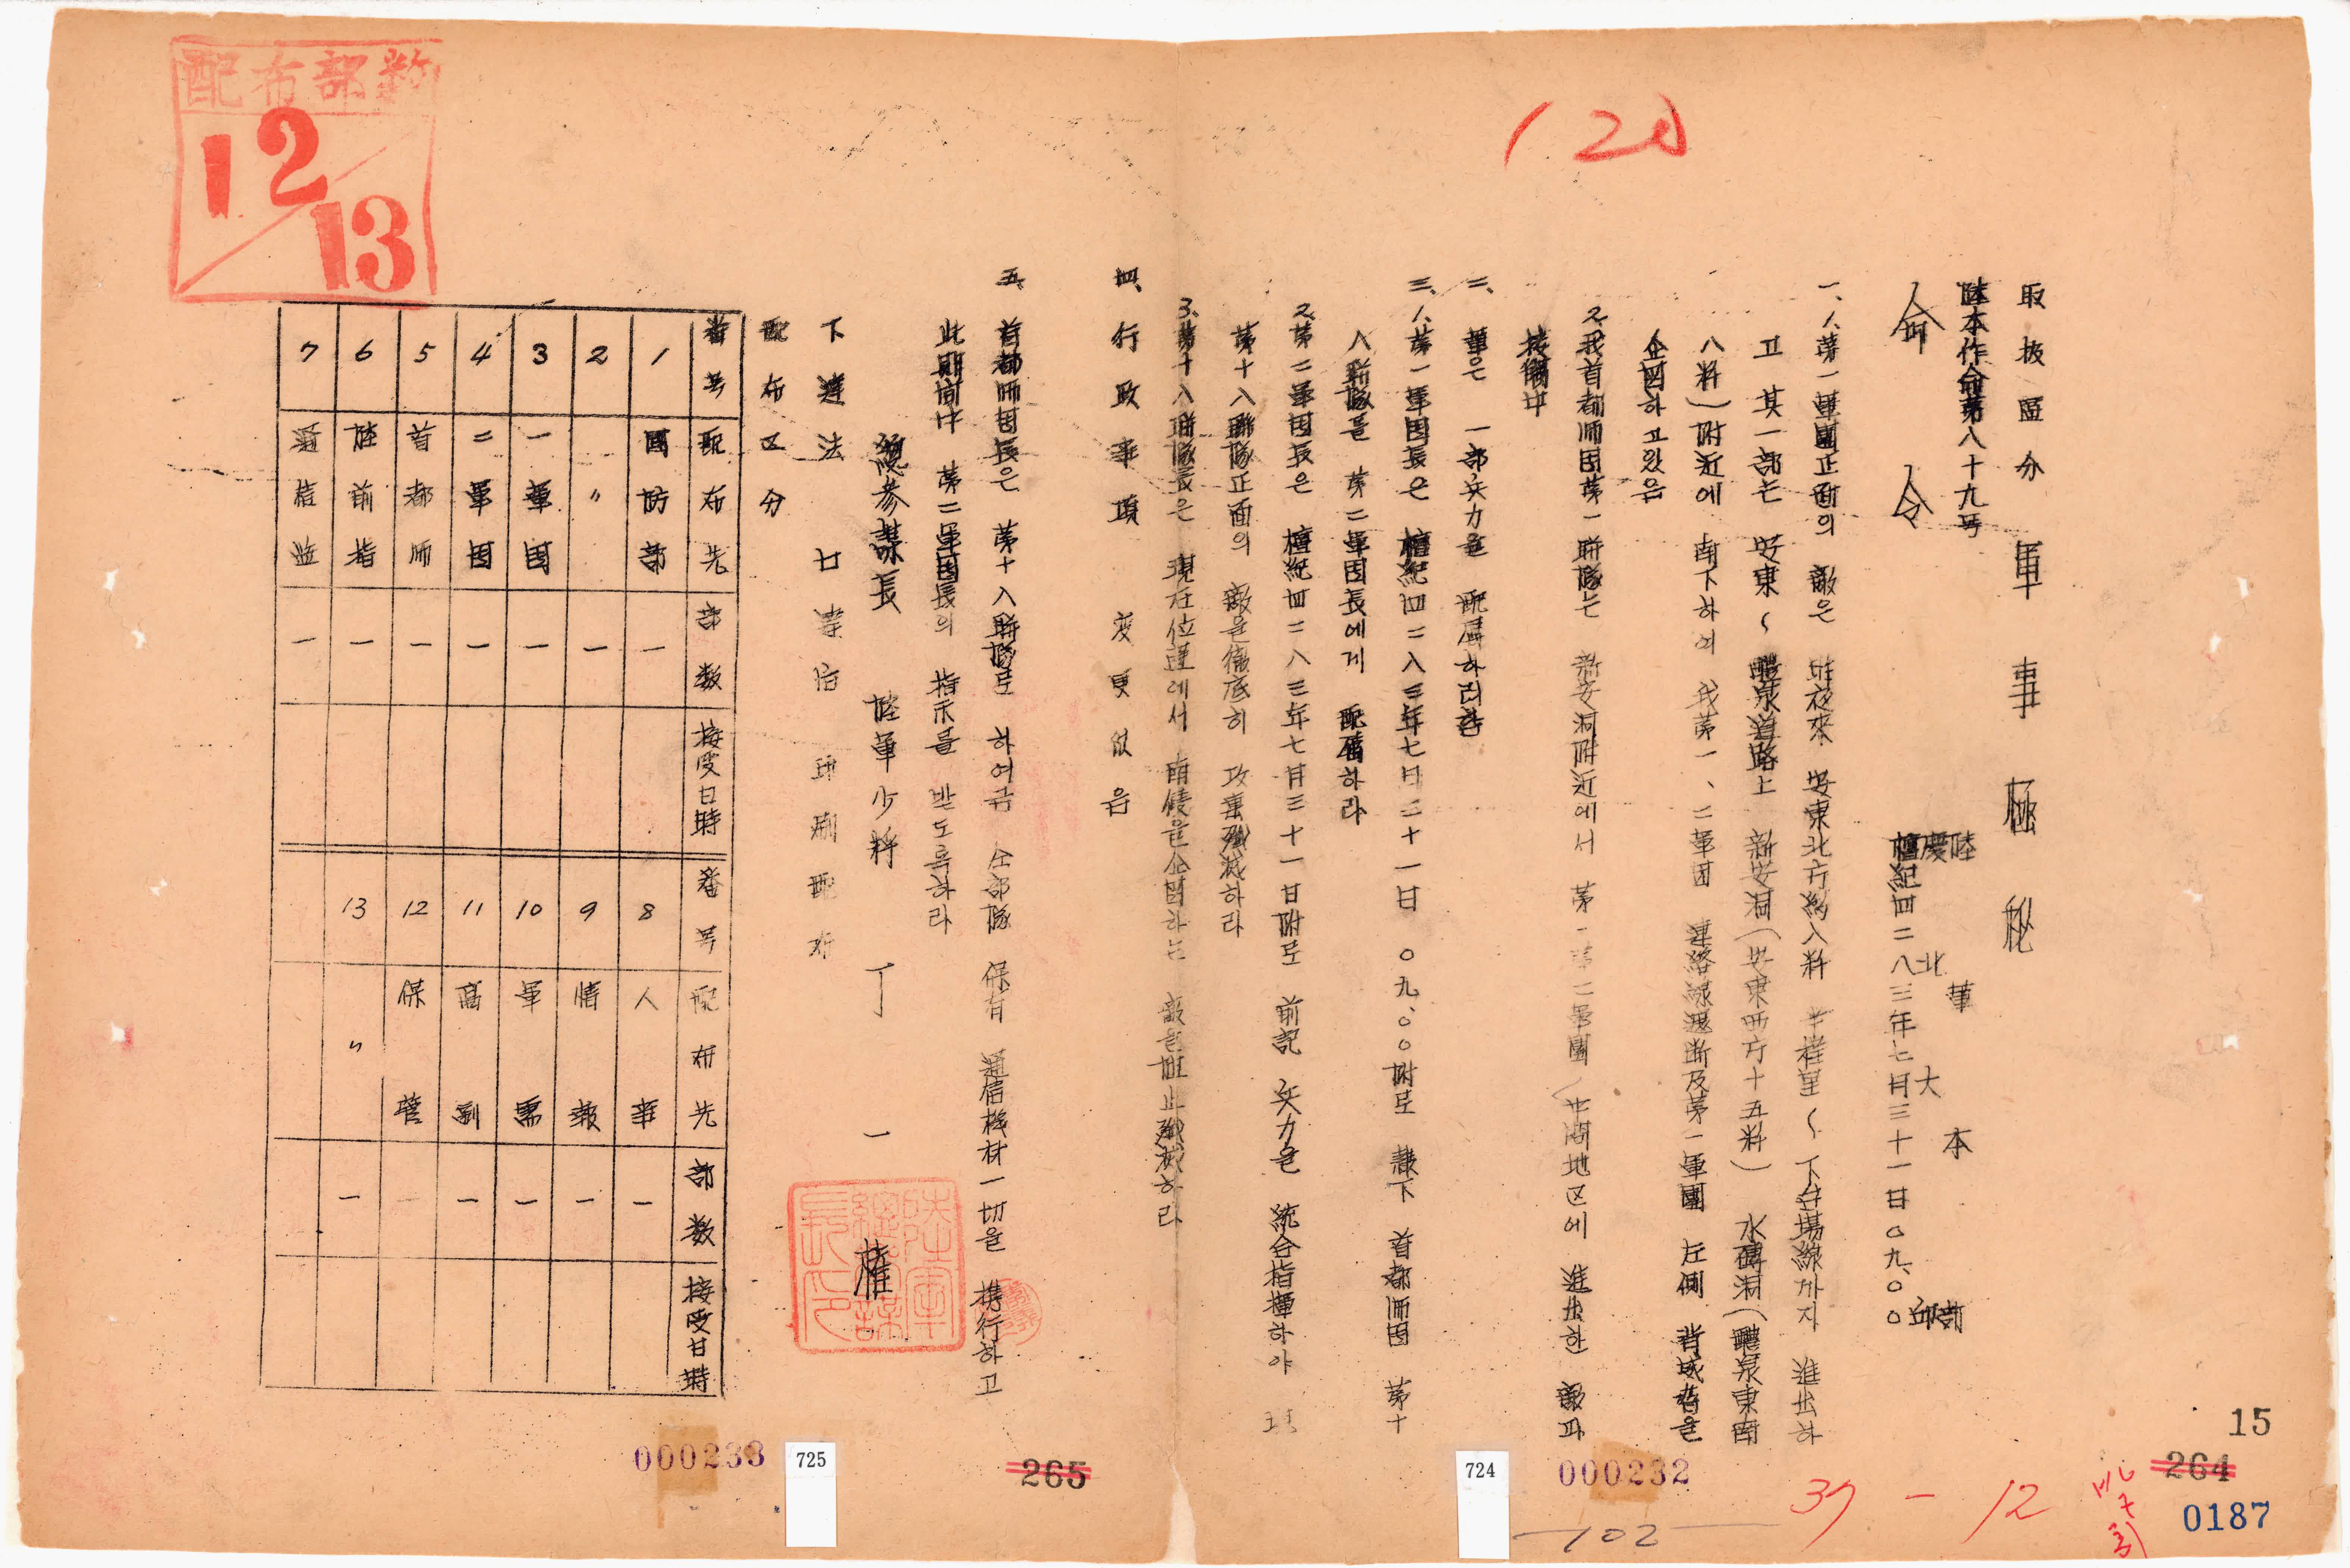 取扱區分 軍事極秘
陸本作命第八十九号
陸軍本部
慶北大邱
檀紀四二八三年七月三十一日〇九、〇〇
命令
一、1、第一軍團正面의 敵은 昨夜來 安東北方約八粁 下台場線까지 進出하
고 其一部는 安東~醴泉道路上 新安洞(安東西方十五粁) 水磚洞(醴泉東南
八粁)附近에 南下하여 我第一、二軍団 連絡線遮断及第一軍團 左側 背威脅을
企図하고있음
2、我首都師団第一聯隊는 新安洞附近에서 第一 第二軍團 地区에 進出한 敵과
接觸中
二、軍은 一部兵力을 配属하려함
三、1、第一軍団長은 檀紀四二八三年七月三十一日 〇九、〇〇附로 隷下 首都師団 第十
八聯隊를 第二軍団長에게 配属하라
2、第二軍団長은 檀紀四二八三年七月三十一日附로 前記 兵力을 統合指揮하야
第十八聯隊正面의 敵을徹底히 攻撃殲滅하라
3、第十八聯隊長은 現在位置에서 南侵을企図하는 敵을阻止殲滅하라
四、行政事項 変更없음
五、首都師団長은 第十八聯隊로 하여금 全部隊 保有 通信機材一切을 携行하고
此期間中 第二軍団長의 指示를 받도록하라
總參謀長 陸軍少將 丁一權
陸軍總參謀長印
下達法 印刷配布
配布区分
番号 配布先 部数 接受日時 番号 配布先 部数 接受日時
1 國防部 一 8 人事 一
2 〃 一 9 情報 一
3 一軍団 一 10 軍需 一
4 二軍団 一 11 高副 一
5 首都師 一 12 保管 一
6 陸前指 一 13 〃 一
7 通信監 一
配布部數
12/13
(20)
000233
725
265
724
000232
102
37-12
15
264
0187